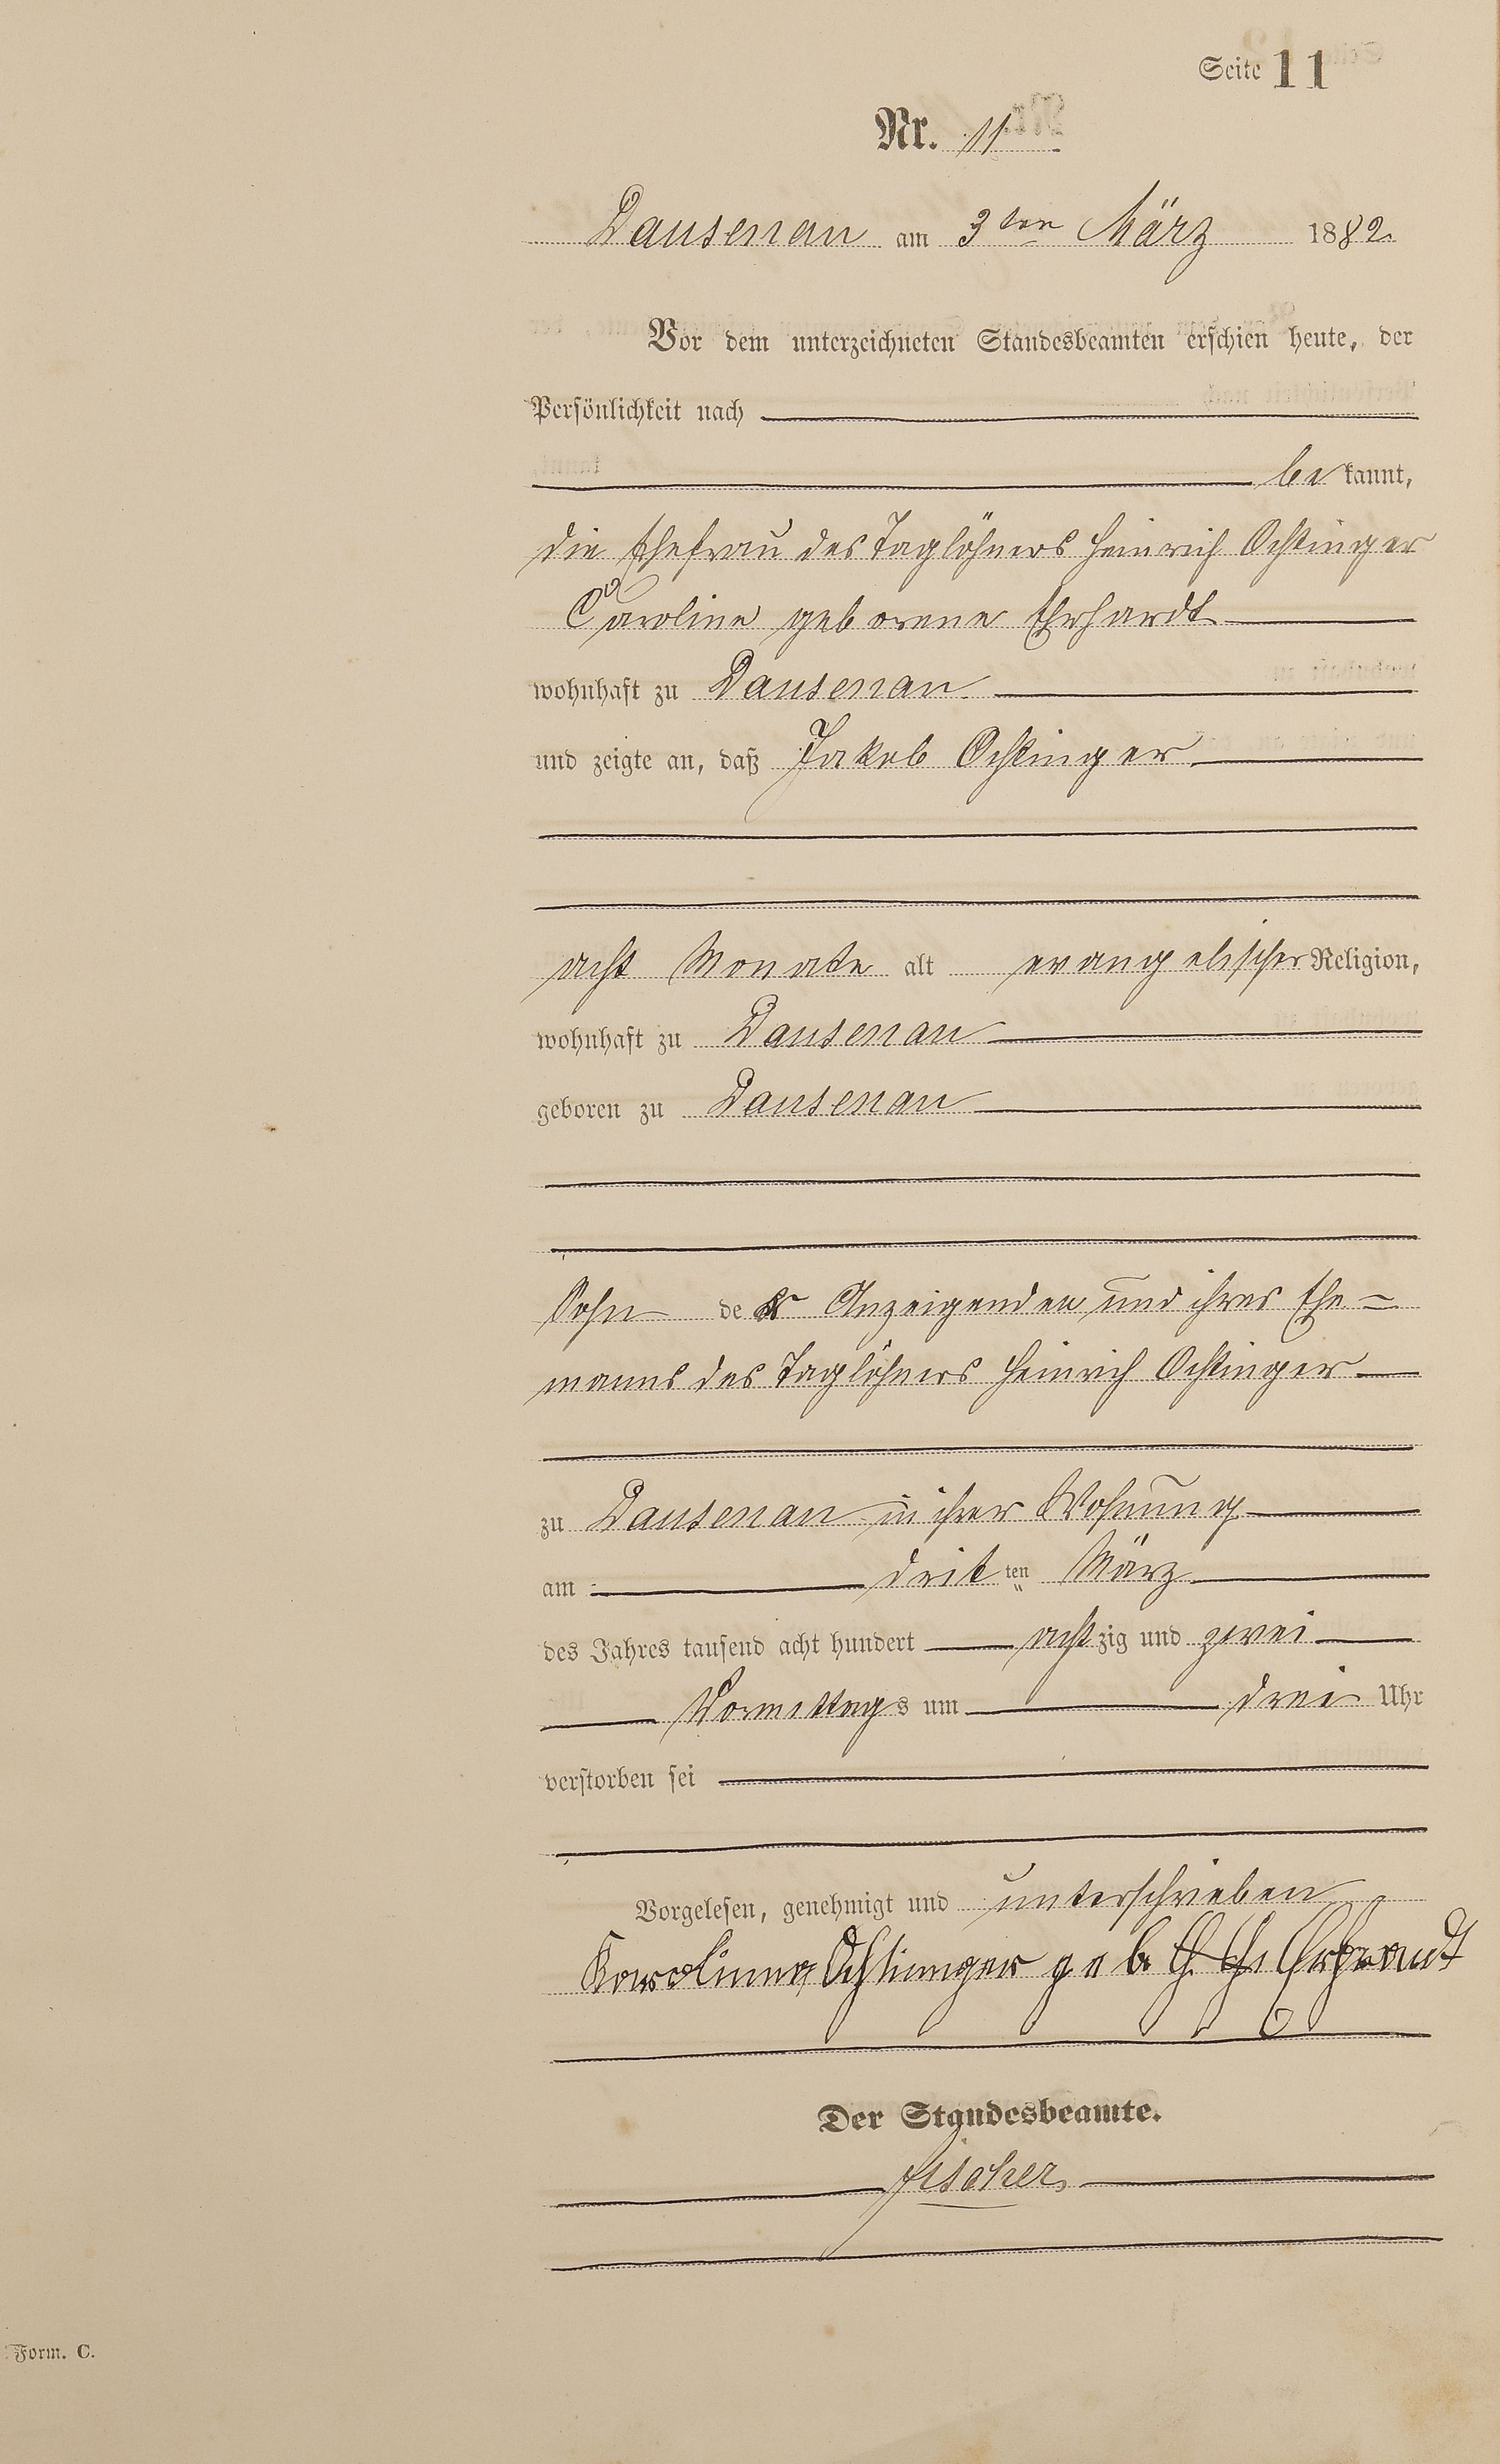 Seite 11
Nr. 11
Dausenau am 3ten März 1882
Vor dem unterzeichneten Standesbeamten erschien heute, der
Persönlichkeit nach
bekannt,
die Ehefrau des Taglöhners Heinrich Ochtinger
Caroline geborene Ehrhardt
wohnhaft zu Dausenau
und zeigte an, daß Jakob Ochtinger
acht Monate alt evangelischer Religion,
wohnhaft zu Dausenau
geboren zu Dausenau
Sohn der Anzeigenden und ihres Ehe-
manns des Taglöhners Heinrich Ochtinger
zu Dausenau in ihrer Wohnung
am dritten März
des Jahres tausend acht hundert achtzig und zwei
Vormittags um drei Uhr
verstorben sei
Vorgelesen, genehmigt und unterschrieben
Ochtinger geb
Der Standesbeamte.
Fischer
Form. C.